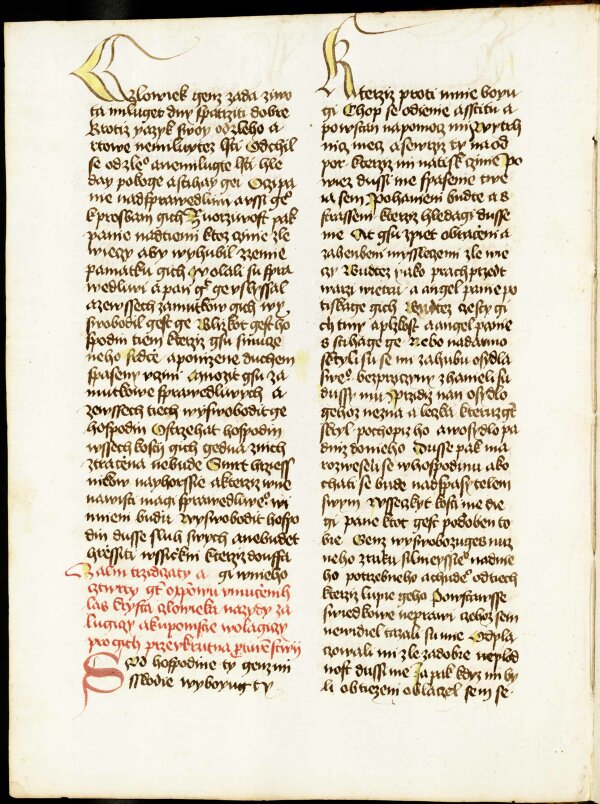 Czlowiek genz zada ziwo
ta miluget dny spatrziti dobre
Krotiz yazyk swoy od zleho a
rtowe nemiluwte lsti Odchil
se od zleº a nemilugie lsti hle
day pokoge a stihay gei Oczi pa
nie nad sprawedlim a vssi geº
k prosbam gich Twarzwost pak
panie nad tiemi ktoz czinie zle
wieczy aby wyhubil zzemie
pamatku gich Wolali su spra
wedliwi a pan gˢ ge vslyssal
a ze wssech zamutkow gich wy
swobodil gest ge Blizkot gest ho
spodin tiem kterziz gsu smucze
neho srdce a ponizene duchem
spaseny vczini Mnozit gsu za
mutkowe sprawedliwych a
ze wssech tiech wyswobodit ge
hospodin Ostrzehat hospodin
wssech kosti gich gedna znich
ztracena nebude Smrt hrziess
nikow nayhorssie a kterziz w ne
nawisti magi sprawedliweº wi
nnieni budu Wyswobodit hospo
din dusse sluh swych a nebudet
hressiti wssickni kterziz douffa
Zalm trzidczaty a gi w nieho
cztwrty gt o spowu vmuczenih
las krysta czlowieka nazyby za
lugiczy a kupomstie wolagiczy
pro gich przeukrutna prwenstwii
Sud hospodine ty genz mi
sskodie wyboyug ty
Kterziz proti mnie boyu
gi Chop se odienie a sstitu a
powstan na pomoc mi Wytrh
ni mecz a sewrziz ty na od
por kterziz mi natisk czinie Po
wiez dussi me spasenie twe
ia sem Pohanieni budte a s
strasseni kterziz hledagi dusse
me At gsu zpiet obraceni a
zahanbeni mysslecziemi zle wie
czy Budtez yako prach przied
twarzi wietru a angel panie po
tiskage gich Budtez ciesty gi
ch tmy a plzkost a angel panie
s stihage ge Nebo nadarmo
skryli su se mi zahubu osydla
sweº bez prziczyny zhaneli su
dussy mu Przidiz nan osydlo
gehoz nezna a leczka kteruz gt
skryl pochopiz ho a w osidlo pa
dniz do nieho Dusse pak ma
rozwesela se w hospodinu a ko
chati se bude nad spasytelem
swym Wsseczkyt kosti me die
gi pane ktoz gest podoben to
bie Genz wyswobozuges nuz
neho z ruku silnieyssieº nad nie
ho potrzebneho a chudeº od tiech
kterziz lupie geho Powstawsse
swiedkowe neprawi czehoz sem
newiediel tazali su mne Odpla
czowali mi zle za dobre neplod
nost dussi me Ja pak kdyz mi by
li obtiezeni oblaczel sem se